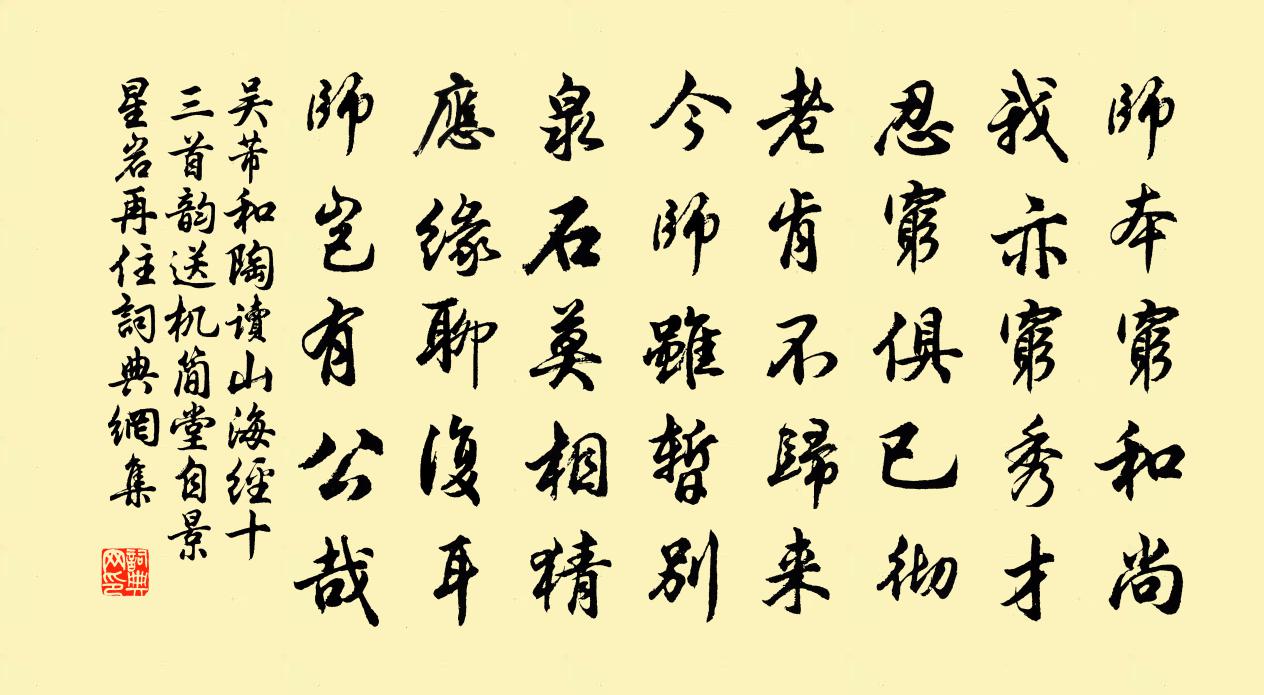 師本窮和尚
我亦窮秀才
忍窮俱已彻
老肯不歸来
今師雖暫别
泉石莫相猜
應緣聊復耳
師岂有公哉
吴芾和陶讀山海經十
三首韵送机简堂自景
星岩再住詞典網集
詞典网印